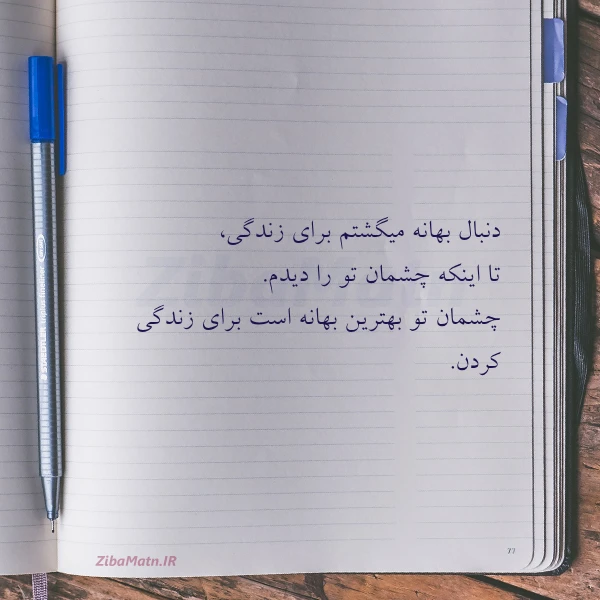 دنبال بهانه میگشتم برای زندگی،
تا اینکه چشمان تو را دیدم.
چشمان تو بهترین بهانه است برای زندگی
کردن.
ZibaMatn.IR